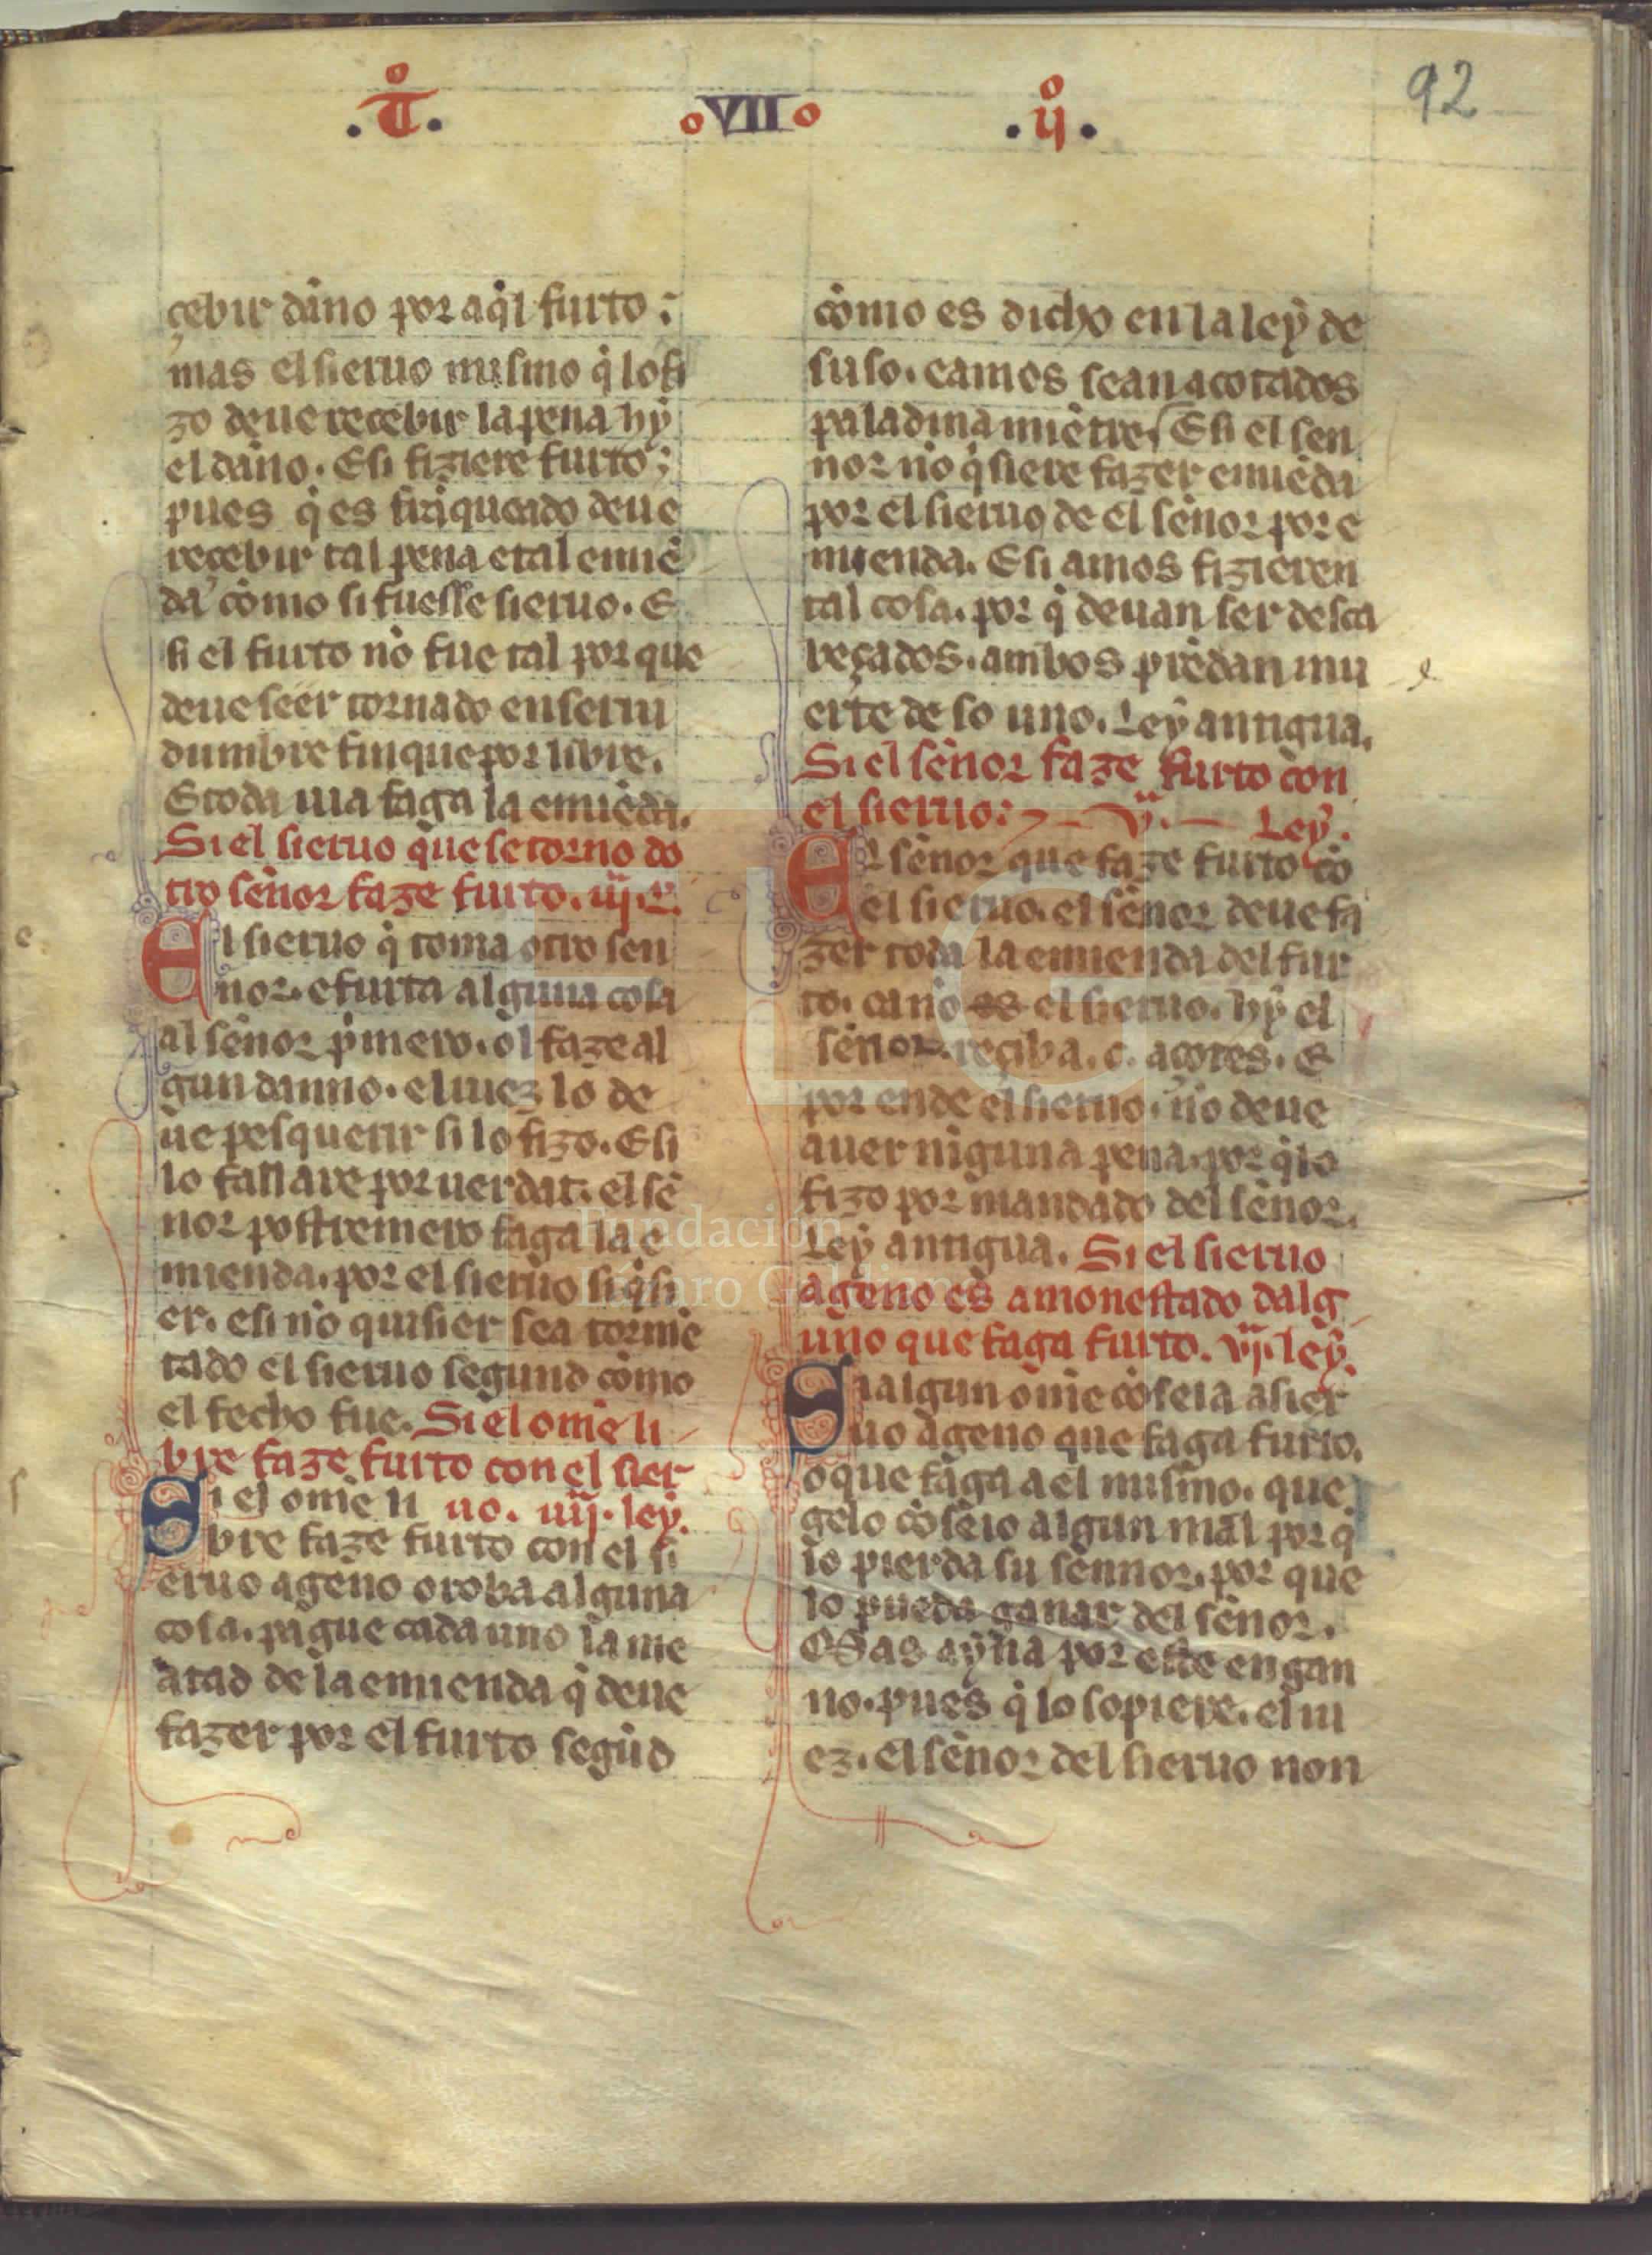 .T̊. oVIIo .ij̊. 92
çebir dãno por aq̃l furto;
mas el sieruo mismo q̃ lo fi
zo deue recebir la pena hy
el dãno. E si fiziere furto;
pues q̃ es frãqueado deue
reçebir tal pena e tal enmiẽ
da cõmo si fuesse sieruo. E
si el furto nõ fue tal por que
deue seer tornado en seruj
dumbre finque por libre.
E toda uia faga la emiẽda.
Si el sieruo que se torno do
tro señor faze furto. iij. L.
El sieruo q̃ toma otro sen
nor. e furta alguna cosa
al señor p̃mero. ol faze al
gun danno. el iuez lo de
ue pesquerir si lo fizo. E si
lo fallare por uerdat. el sẽ
nor postremero faga la e
mienda. por el sieruo si q̃si
er. e si nõ quisier sea tormẽ
tado el sieruo segund cõmo
el fecho fue. Si el omẽ li
bre faze furto con el sier
Si el omẽ li uo. iiij. ley.
bre faze furto con el si
eruo ageno o roba alguna
cosa. pague cada uno la me
atad de la enmienda q̃ deue
fazer por el furto segũd
cõmo es dicho en la ley de
suso. e amos sean açotados
paladina miẽtre. E si el sen
nor nõ q̃siere fazer enmiẽda
por el sieruo de el señor por e
mienda. E si amos fizieren
tal cosa. por q̃ deuan ser desca
beçados. ambos prẽdan mu
erte de so uno. Ley antigua.
Si el señor faze furto con
el sieruo; v. Ley.
El señor que faze furto cõ
el sieruo. el señor deue fa
zer toda la enmienda del fur
to. ca nõ es el sieruo. hy el
señor. reçiba. c. açotes. E
por ende el sieruo. nõ deue
auer nĩguna pena. por q̃ lo
fizo por mandado del señor.
Ley antigua. Si el sieruo
ageno es amonestado dalg
uno que faga furto. vj. ley.
Si algun omẽ cõseia a sier
uo ageno que faga furto.
o que faga a el mismo. que
gelo cõseio algun mal por q̃
lo pierda su sennor. por que
lo pueda ganar del señor.
Mas ayña por este engan
no. pues q̃ lo sopiere. el iu
ez. el señor del sieruo non
Fundación
Lázaro Galdiano
FLG